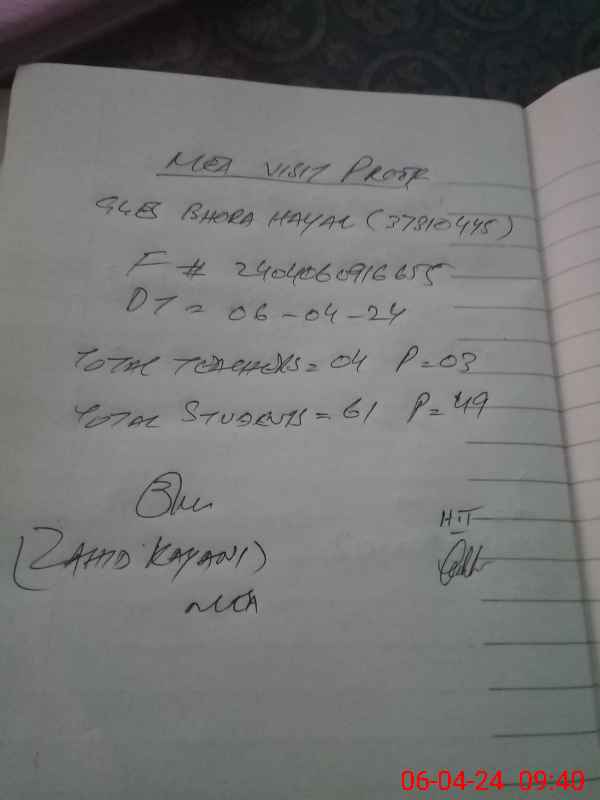 MEA VISIT PROOF
GLES BHORA HAYAL (37310445)
F # 2404060916655
DT = 06-04-24
TOTAL TEACHERS = 04 P = 03
TOTAL STUDENTS = 61 P = 49
(ZAHID KAYANI)
MEA
HTT
06-04-24 09:40